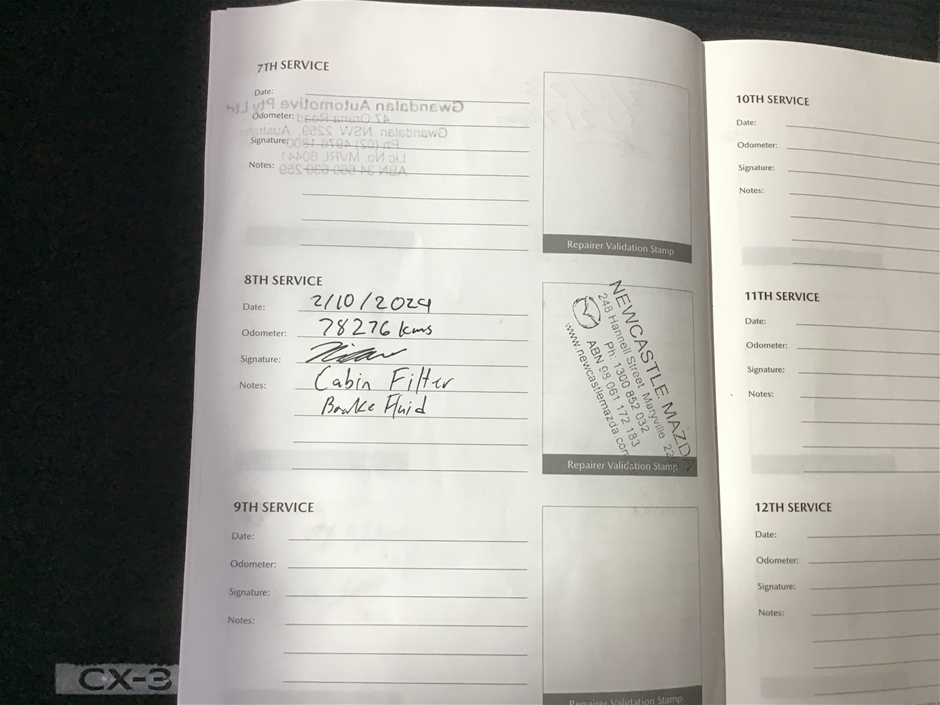 7TH SERVICE
Date:
Gwandalan Automotive Pty Ltd
Odometer:
47 Orana Road
Gwandalan NSW 2259, Australia
Signature:
Ph (02) 4976 1800
Lic No. MVRL 60441
Notes:
ABN 34 660 630 259
Repairer Validation Stamp
8TH SERVICE
Date: 2/10/2024
Odometer: 78276 kms
Signature:
Notes: Cabin Filter
Brake Fluid
NEWCASTLE MAZDA
248 Hannell Street, Maryville 22
Ph. 1300 852 032
ABN 98 061 172 183
www.newcastlemazda.com
Repairer Validation Stamp
9TH SERVICE
Date:
Odometer:
Signature:
Notes:
Repairer Validation Stamp
10TH SERVICE
Date:
Odometer:
Signature:
Notes:
11TH SERVICE
Date:
Odometer:
Signature:
Notes:
12TH SERVICE
Date:
Odometer:
Signature:
Notes:
CX-3